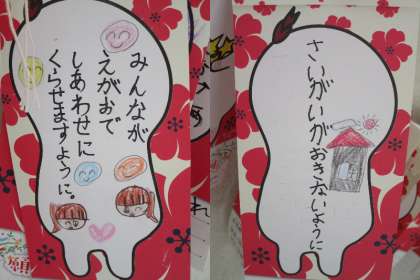 みんなが
えがおで
しあわせに
くらせますように。
さいがいがおきないように
願